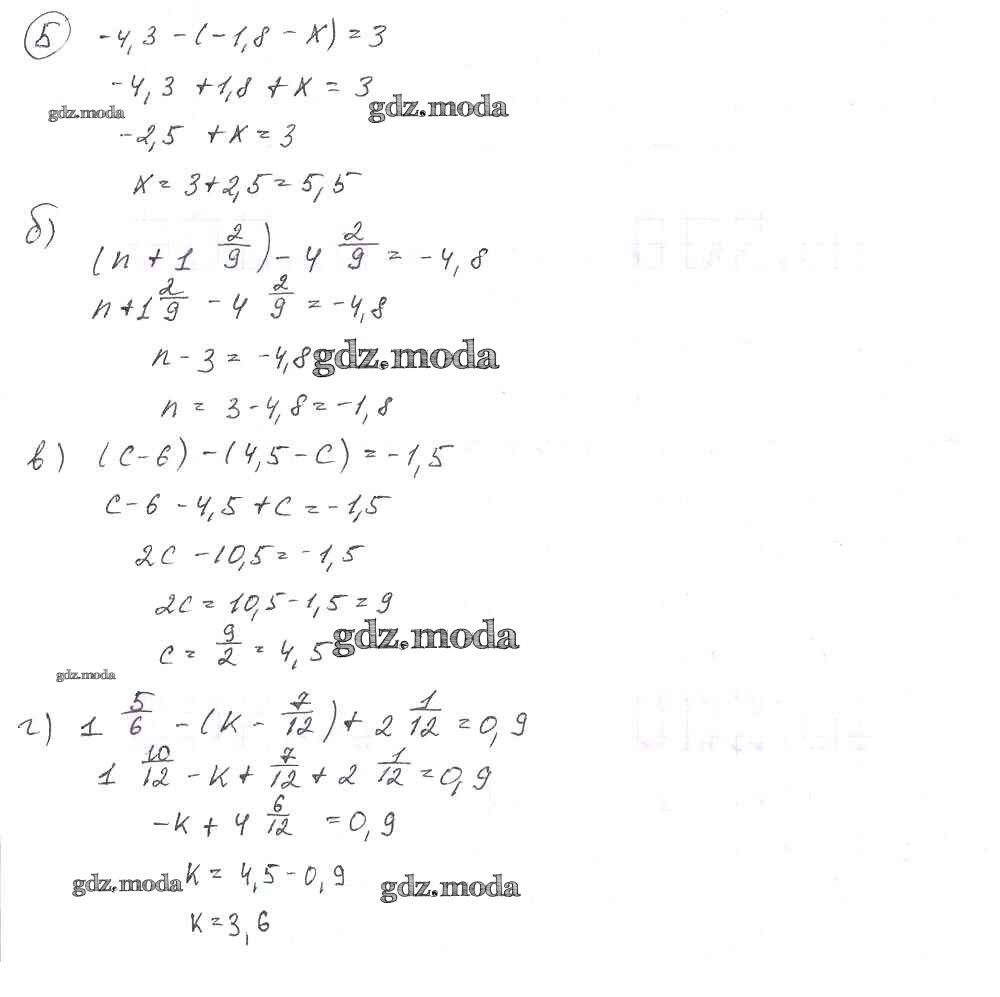 5 -4,3 - (-1,8 - x) = 3
-4,3 + 1,8 + x = 3
gdz.moda gdz.moda
-2,5 + x = 3
x = 3 + 2,5 = 5,5
б) (n + 1 2/9) - 4 2/9 = -4,8
n + 1 2/9 - 4 2/9 = -4,8
n - 3 = -4,8 gdz.moda
n = 3 - 4,8 = -1,8
в) (c - 6) - (4,5 - c) = -1,5
c - 6 - 4,5 + c = -1,5
2c - 10,5 = -1,5
2c = 10,5 - 1,5 = 9
c = 9/2 = 4,5 gdz.moda
gdz.moda
г) 1 5/6 - (k - 7/12) + 2 1/12 = 0,9
1 10/12 - k + 7/12 + 2 1/12 = 0,9
-k + 4 6/12 = 0,9
gdz.moda k = 4,5 - 0,9 gdz.moda
k = 3,6